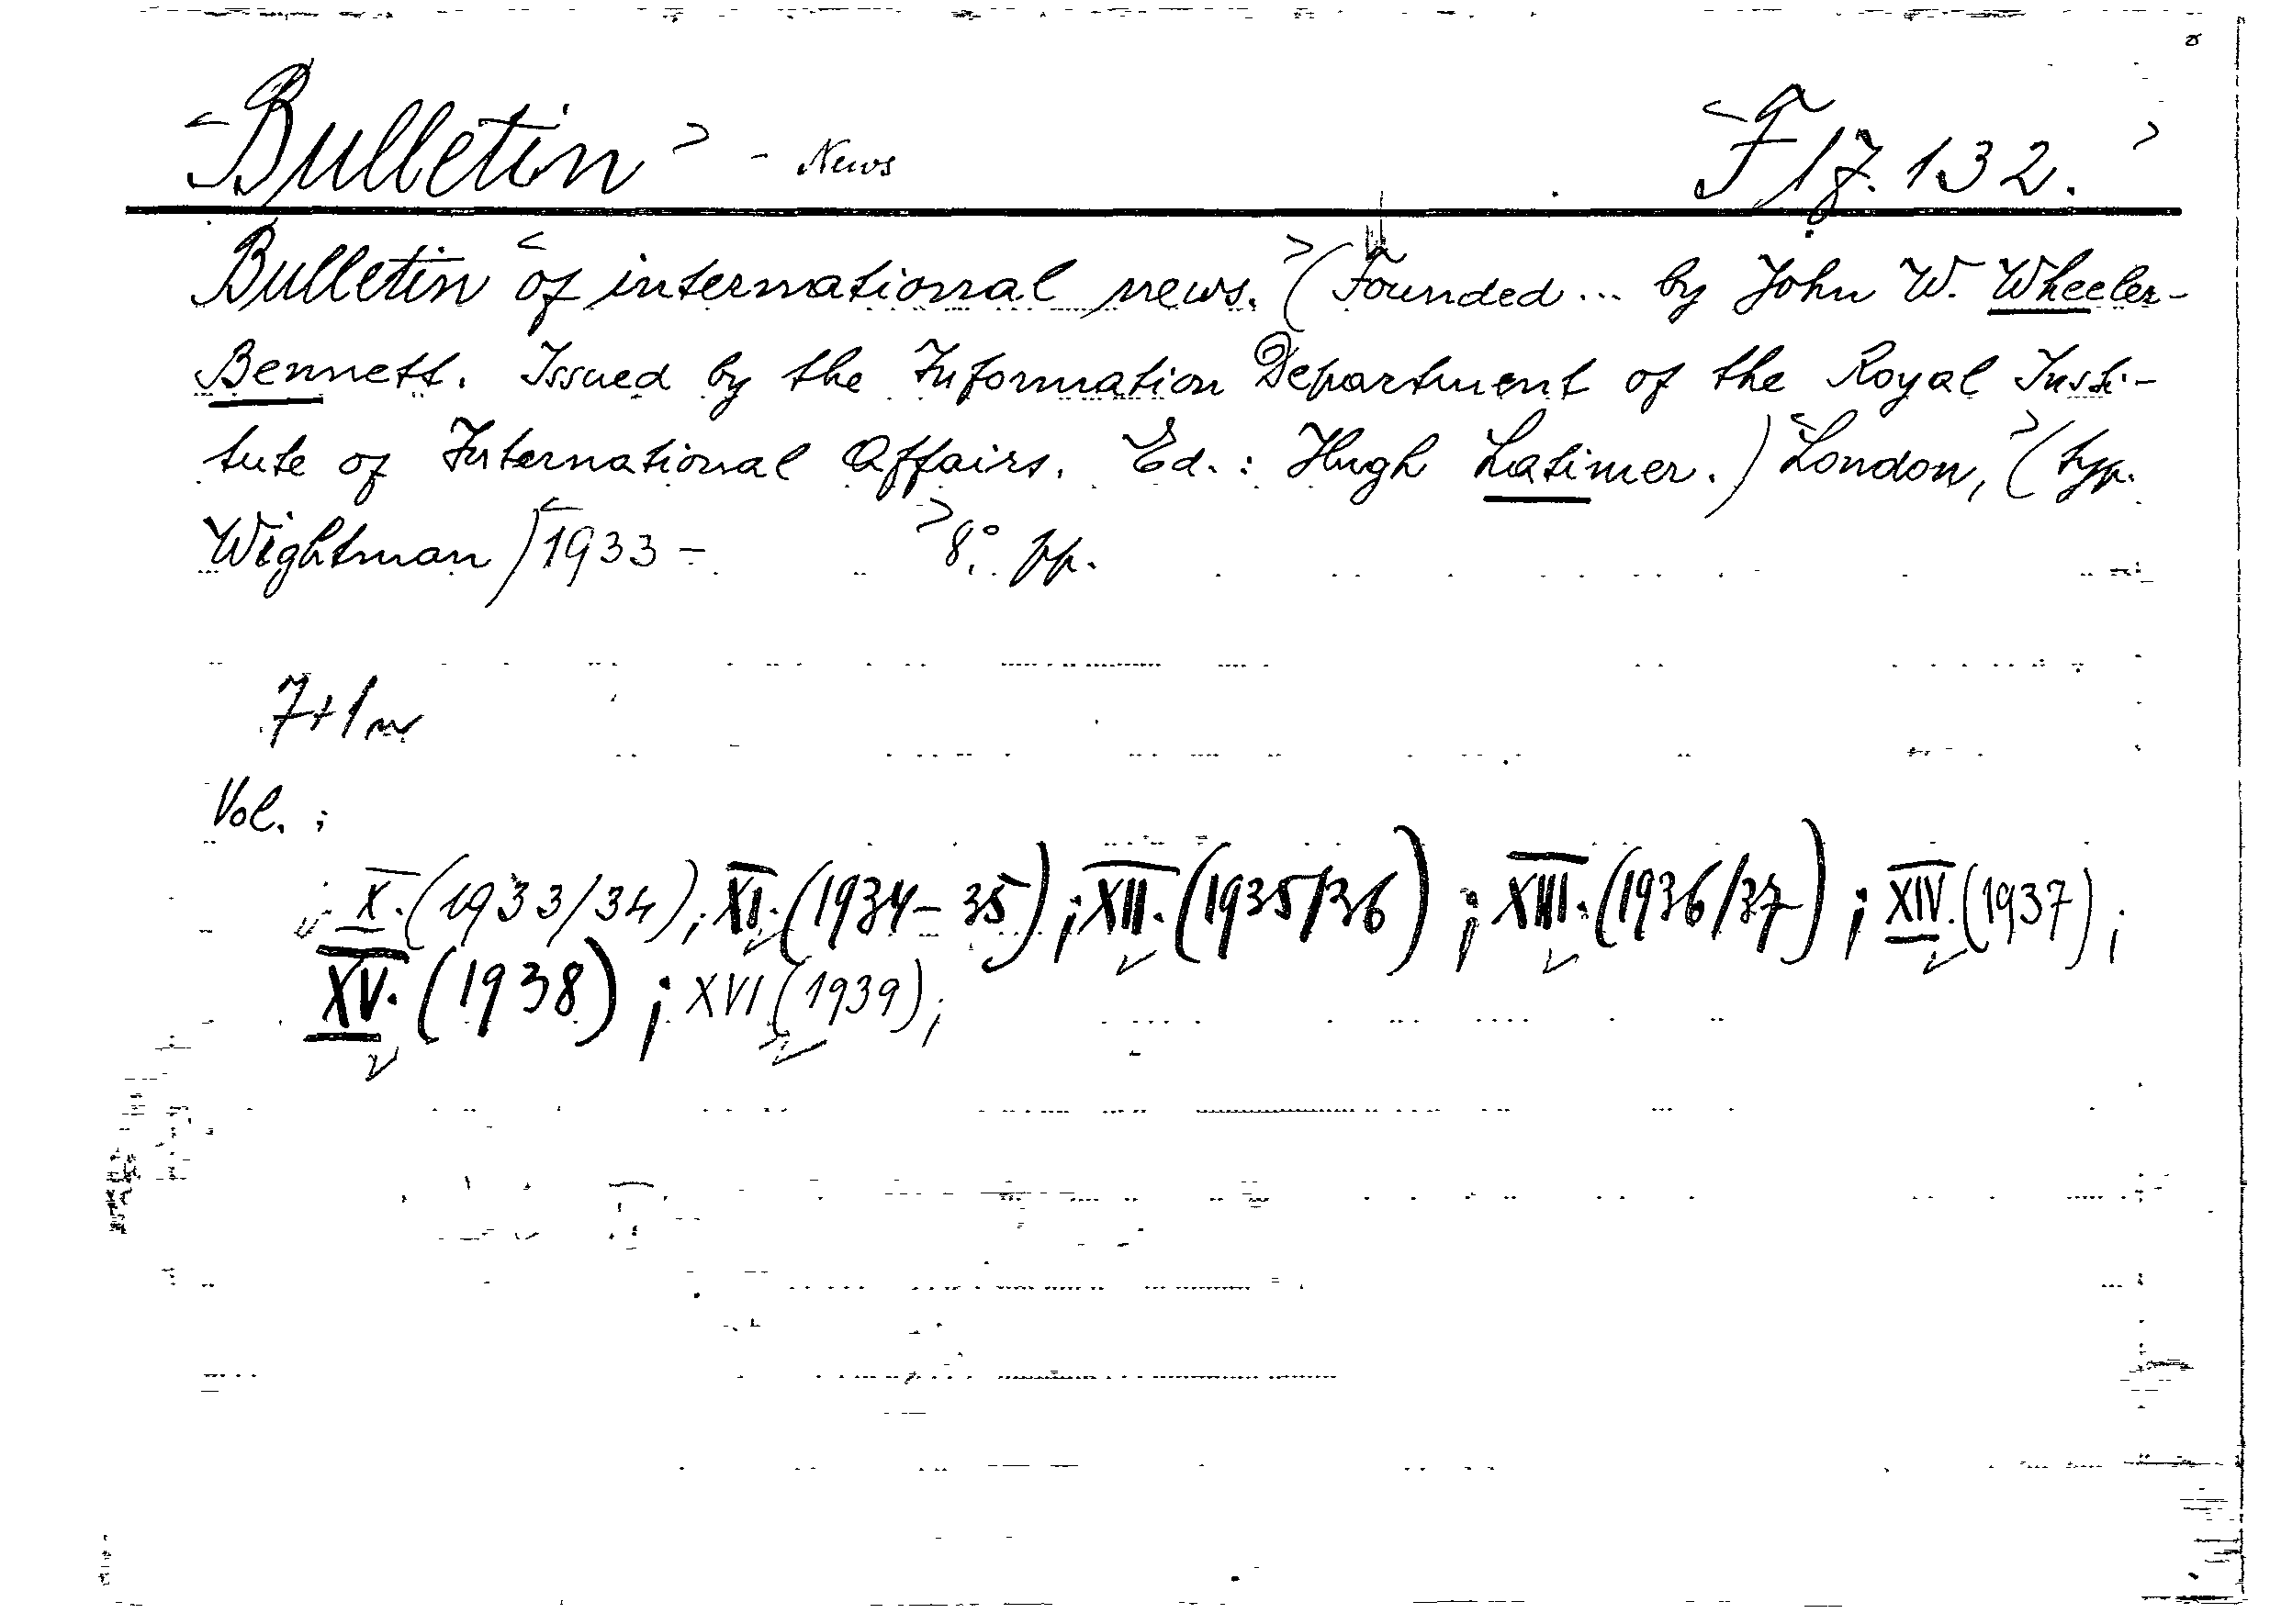 <Bulletin> - News <F 17.132.>
Bulletin <of international news.> (Founded ... by John W. Wheeler-
Bennett. Issued by the Information Department of the Royal Insti-
tute of International Affairs. Ed.: Hugh Latimer.) <London,> (typ.
Wightman) <1933 - > 8°. pp.
7+1
Vol. :
X. (1933/34); XI. (1934-35); XII. (1935/36); XIII. (1936/37); XIV. (1937);
XV. (1938); XVI (1939);